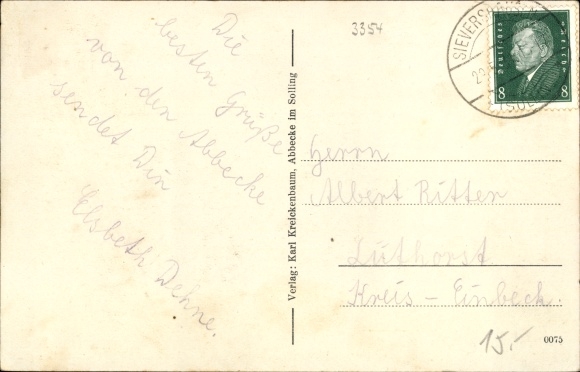 Die
besten Grüße
von den Abbecke
sendet Din
Elsbeth Dehne.
3354
Verlag: Karl Kreickenbaum, Abbecke im Solling
SIEVERSHAUSEN
Deutsches Reich
8 8
Herrn
Albert Ritter
Lüthorst
Kreis - Einbeck.
15,-
0075